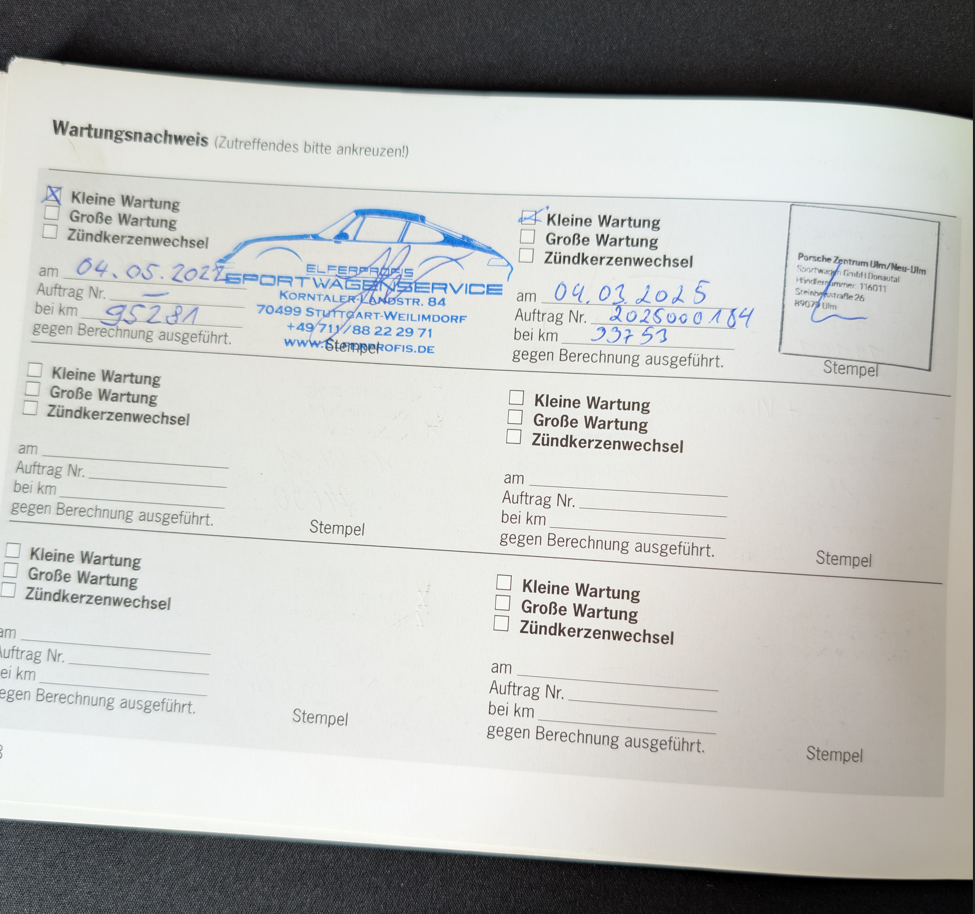 Wartungsnachweis (Zutreffendes bitte ankreuzen!)
Kleine Wartung
Große Wartung
Zündkerzenwechsel
am 04.05.2022
Auftrag Nr. —
bei km 95281
gegen Berechnung ausgeführt.
ELFERPROFIS
SPORTWAGENSERVICE
KORNTALER LANDSTR. 84
70499 STUTTGART-WEILIMDORF
+49 711/88 22 29 71
WWW.ELFERPROFIS.DE
Stempel
Kleine Wartung
Große Wartung
Zündkerzenwechsel
am 04.03.2025
Auftrag Nr. 2025000184
bei km 99753
gegen Berechnung ausgeführt.
Porsche Zentrum Ulm/Neu-Ulm
Sportwagen GmbH Donautal
Händlernummer: 116011
Steinbeisstraße 26
89079 Ulm
Stempel
Kleine Wartung
Große Wartung
Zündkerzenwechsel
am
Auftrag Nr.
bei km
gegen Berechnung ausgeführt.
Stempel
Kleine Wartung
Große Wartung
Zündkerzenwechsel
am
Auftrag Nr.
bei km
gegen Berechnung ausgeführt.
Stempel
Kleine Wartung
Große Wartung
Zündkerzenwechsel
am
Auftrag Nr.
ei km
egen Berechnung ausgeführt.
Stempel
Kleine Wartung
Große Wartung
Zündkerzenwechsel
am
Auftrag Nr.
bei km
gegen Berechnung ausgeführt.
Stempel